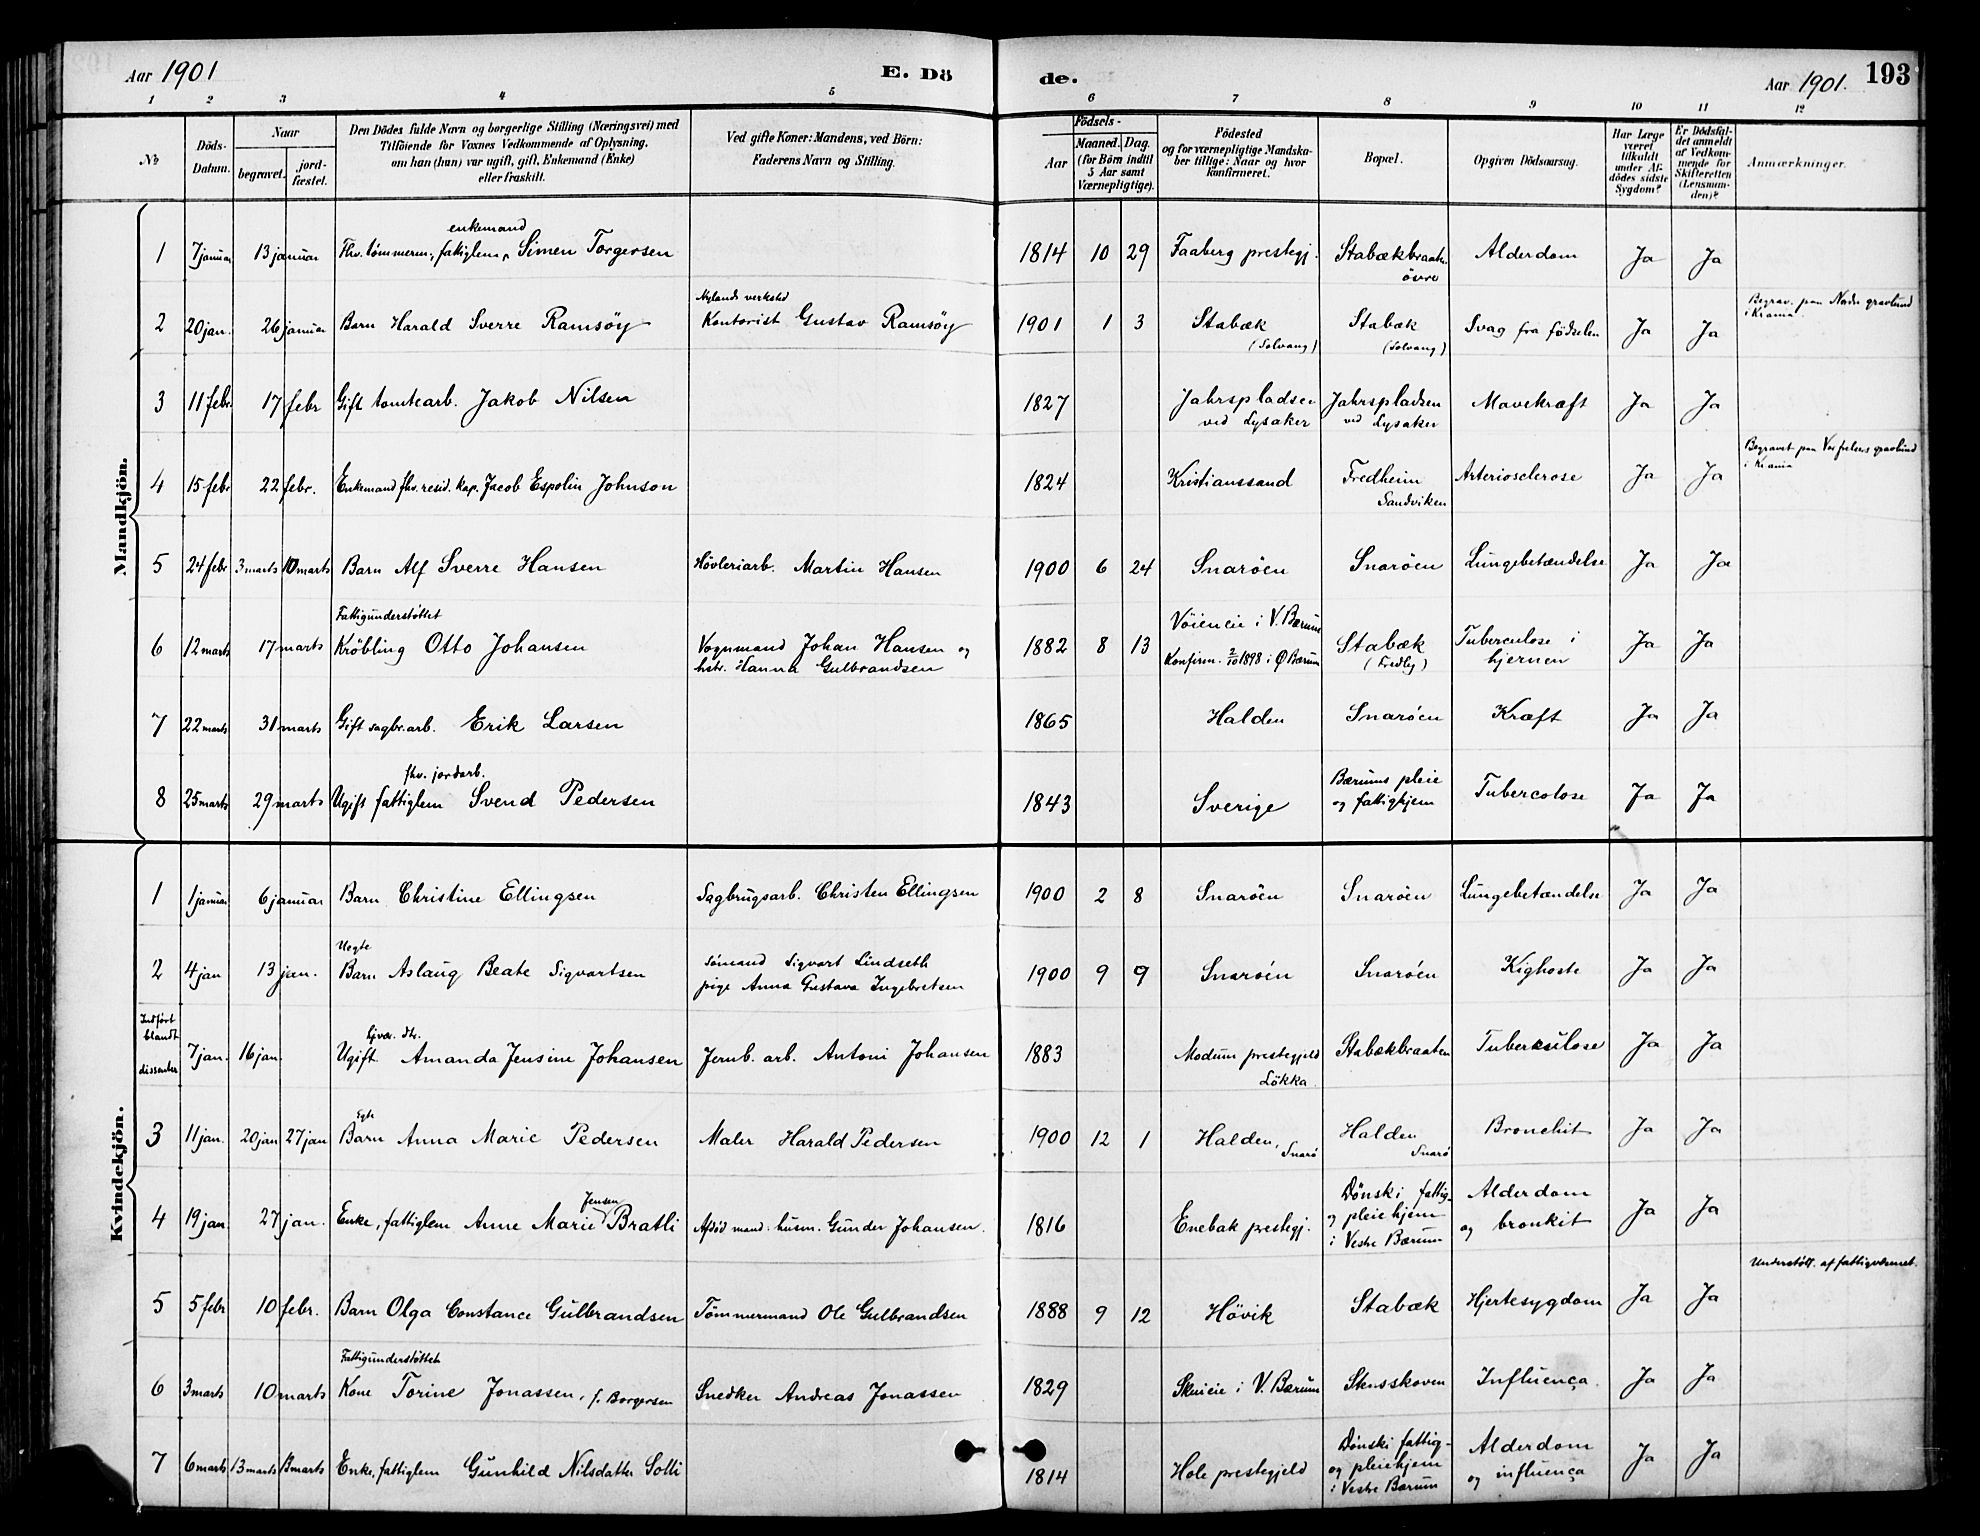 Aar 1901 E. Dö de. Aar 1901. 193
1 2 3 4 5 6 7 8 9 10 11 12
No
Döds-Datum.
Naar begravet. jord-fæstet.
Den Dödes fulde Navn og borgerlige Stilling (Næringsvei) med
Tilföiende for Voxnes Vedkommende af Oplysning,
om han (hun) var ugift, gift, Enkemand (Enke)
eller fraskilt.
Ved gifte Koner: Mandens, ved Börn:
Faderens Navn og Stilling.
Födsels-
Aar Maaned. Dag.
(for Børn indtil
5 Aar samt
Værnepligtige).
Födested
og for værnepligtige Mandska-
ber tillige: Naar og hvor
konfirmeret.
Bopæl.
Opgiven Dödsaarsag.
Har Læge
været
tilkaldt
under Af-
dödes sidste
Sygdom?
Er Dödsfal-
det anmeldt
af Vedkom-
mende for
Skifteretten
(Lensman-
den)?
Anmærkninger.
Mandkjön.
enkemand
1 7 januar 13 januar Fhv. tømmerm., fattiglem, Simen Torgersen 1814 10 29 Faaberg prestegj. Stabækbraaten Alderdom Ja Ja
övre
Nylands verksted Begrav. paa Nordre gravlund
2 20 jan. 26 januar Barn Harald Sverre Ramsöy Kontorist Gustav Ramsöy 1901 1 3 Stabæk Stabæk Svag fra födselen Ja Ja i Krania.
(Solvang) (Solvang)
3 11 febr. 17 febr Gift tomtearb. Jakob Nilsen 1827 Jahrspladsen Jahrspladsen Mavekræft Ja Ja
ved Lysaker ved Lysaker
Begravet paa Vor frelsers gravlund
4 15 febr 22 febr. Enkemand fhv. resid. kap. Jacob Espolin Johnson 1824 Kristianssand Fredheim Arteriosclerose Ja Ja i Krania
Sandviken
5 24 febr 3 marts 10 marts Barn Alf Sverre Hansen Hövleriarb. Martin Hansen 1900 6 24 Snaröen Snaröen Lungebetændelse Ja Ja
Fattigunderstöttet Vöieneie i V. Bærum
6 12 marts 17 marts Kröbling Otto Johansen Vognmand Johan Hansen og 1882 8 13 Stabæk Tuberculose i Ja Ja
hstr. Hanna Gulbrandsen Konfirm. 2/10 1898 i Ø Bærum (Fredly) hjernen
7 22 marts 31 marts Gift sagbr.arb. Erik Larsen 1865 Halden Snaröen Kræft Ja Ja
fhv. jordarb. Bærums pleie
8 25 marts 29 marts Ugift fattiglem Svend Pedersen 1843 Sverige og fattighjem Tubercolose Ja Ja
Kvindekjön.
1 1 januar 6 januar Barn Christine Ellingsen Sagbrugsarb. Christen Ellingsen 1900 2 8 Snaröen Snaröen Lungebetændelse Ja Ja
Uegte Sömand Sigvart Lindseth
2 4 jan 13 jan. Barn Aslaug Beate Sigvartsen pige Anna Gustava Ingebretsen 1900 9 9 Snaröen Snaröen Kighoste Ja Ja
Indfört
blandt
dissenter 7 jan. 16 jan. Ugift. Amanda Jensine Johansen Jernb. arb. Antoni Johansen 1883 Modum prestegjeld Stabækbraaten Tuberculose Ja Ja
Lökka
Egte
3 11 jan. 20 jan 27 jan Barn Anna Marie Pedersen Maler Harald Pedersen 1900 12 1 Halden, Snarö Halden Snarö Bronchit Ja Ja
Jensen Dönski fattig- Alderdom
4 19 jan. 27 jan. Enke, fattiglem Anne Marie Bratli Afdød mand: husm. Gunder Johansen. 1816 Enebak prestegj. og pleiehjem og bronkit Ja Ja
i Vestre Bærum
Understött. af fattigvæsenet.
5 5 febr 10 febr. Barn Olga Constance Gulbrandsen Tömmermand Ole Gulbrandsen 1888 9 12 Hövik Stabæk Hjertesygdom Ja Ja
Fattigunderstöttet
6 3 marts 10 marts Kone Torine Jonassen, f. Borgersen Snedker Andreas Jonassen 1829 Skuieie i V. Bærum Stensskoven Influença. Ja Ja
Dönski fattig- Alderdom
7 6 marts 13 marts 13 marts Enke, fattiglem Gunhild Nilsdatter Solli 1814 Hole prestegjeld og pleiehjem og influença Ja Ja
i Vestre Bærum